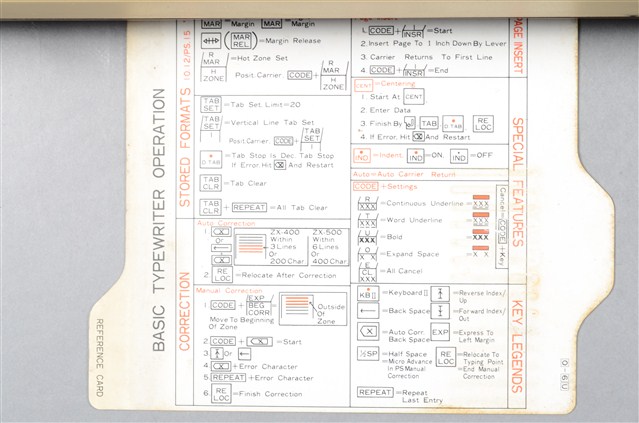 BASIC TYPEWRITER OPERATION
REFERENCE CARD
STORED FORMATS 10.12/PS.15
MAR =Margin MAR =Margin
MAR REL =Margin Release
R MAR / =Hot Zone Set
H ZONE Posit. Carrier, CODE + R MAR / H ZONE
TAB SET =Tab Set. Limit=20
TAB SET | =Vertical Line Tab Set
Posit. Carrier, CODE + TAB SET |
D TAB =Tab Stop Is Dec. Tab Stop
If Error, Hit X And Restart
TAB CLR =Tab Clear
TAB CLR + REPEAT =All Tab Clear
CORRECTION
Auto Correction
1. X
Or
←
X
ZX-400 Within 3 Lines Or 200 Char.
ZX-500 Within 6 Lines Or 400 Char.
2. RE LOC =Relocate After Correction
Manual Correction
1. CODE + EXP / BEG CORR = Outside Of Zone
Move To Beginning Of Zone
2. CODE + X =Start
3. Or ←
4. X +Error Character
5. REPEAT +Error Character
6. RE LOC =Finish Correction
PAGE INSERT
1. CODE + INSR =Start
2. Insert Page To 1 Inch Down By Lever
3. Carrier Returns To First Line
4. CODE + INSR =End
SPECIAL FEATURES
CENT =Centering
1. Start At CENT
2. Enter Data
3. Finish By TAB D TAB RE LOC
4. If Error, Hit X And Restart
IND =Indent. IND =ON, IND =OFF
Auto=Auto Carrier Return
CODE +Settings
R XXX =Continuous Underline=XXX
T XXX =Word Underline =XXX
U XXX =Bold =XXX
O X X =Expand Space =X X
E CL XXX =All Cancel
Cancel=CODE+Key
KEY LEGENDS
KB II =Keyboard II
=Reverse Index/Up
← =Back Space
=Forward Index/Out
X =Auto Corr. Back Space
EXP =Express To Left Margin
½SP =Half Space
=Micro Advance In PS Manual Correction
RE LOC =Relocate To Typing Point
=End Manual Correction
REPEAT =Repeat Last Entry